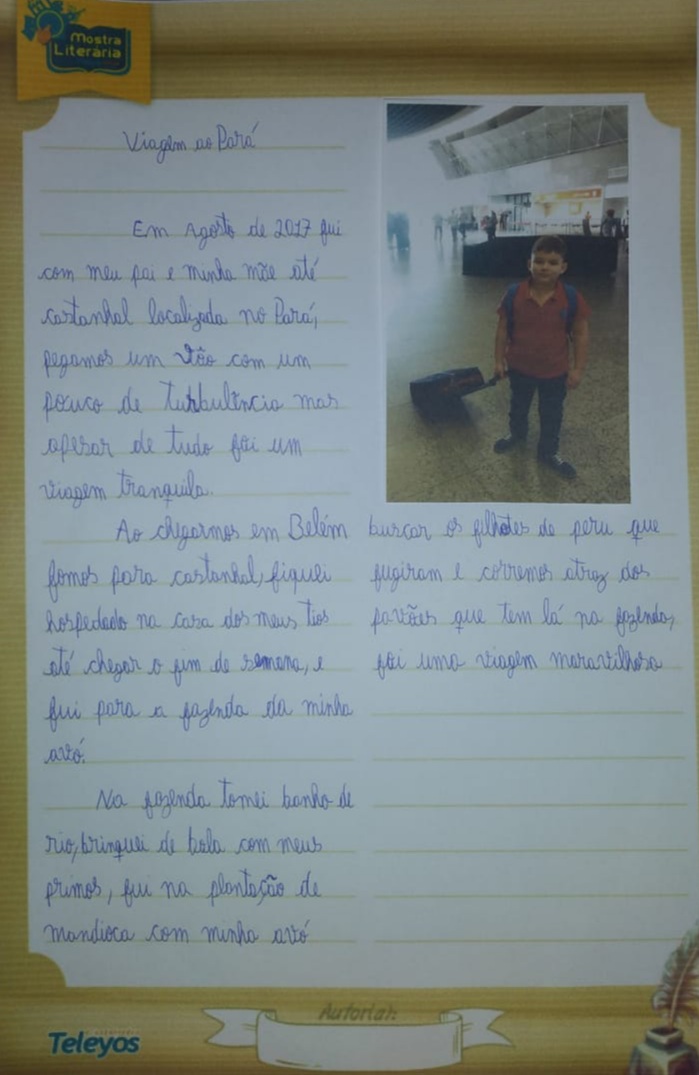 Mostra
Literária
Viagem ao Pará
Em Agosto de 2017 fui
com meu pai e minha mãe até
castanhal localizada no Pará,
pegamos um vôo com um
pouco de turbulência mas
apesar de tudo foi um
viagem tranquila.
Ao chegarmos em Belém
fomos para castanhal, fiquei
hospedado na casa dos meus tios
até chegar o fim de semana, e
fui para a fazenda da minha
avó.
Na fazenda tomei banho de
rio, brinquei de bola com meus
primos, fui na plantação de
mandioca com minha avó
buscar os filhotes de peru que
fugiram e corremos atraz dos
pavões que tem lá na fazenda,
foi uma viagem maravilhosa
Autoria:
Teleyos